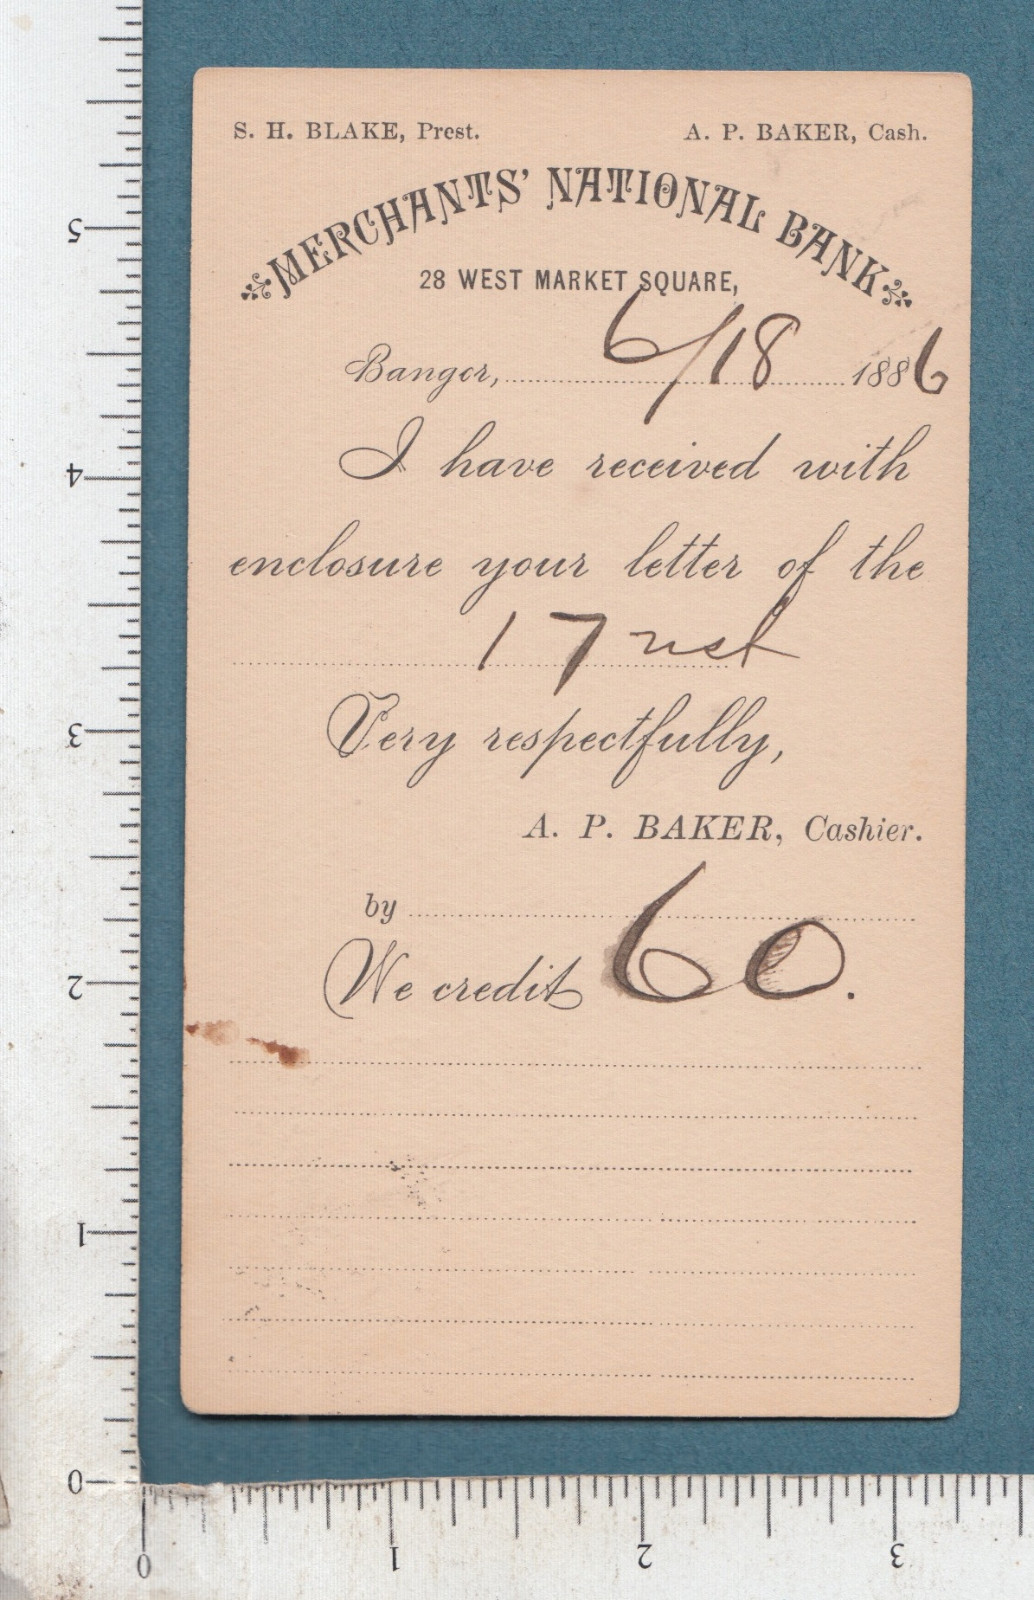 S. H. BLAKE, Prest. A. P. BAKER, Cash.
MERCHANTS' NATIONAL BANK
28 WEST MARKET SQUARE,
Bangor, 6/18 1886
I have received with
enclosure your letter of the
17 inst
Very respectfully,
A. P. BAKER, Cashier.
by
We credit 60.
5
4
3
2
1
0
0 1 2 3